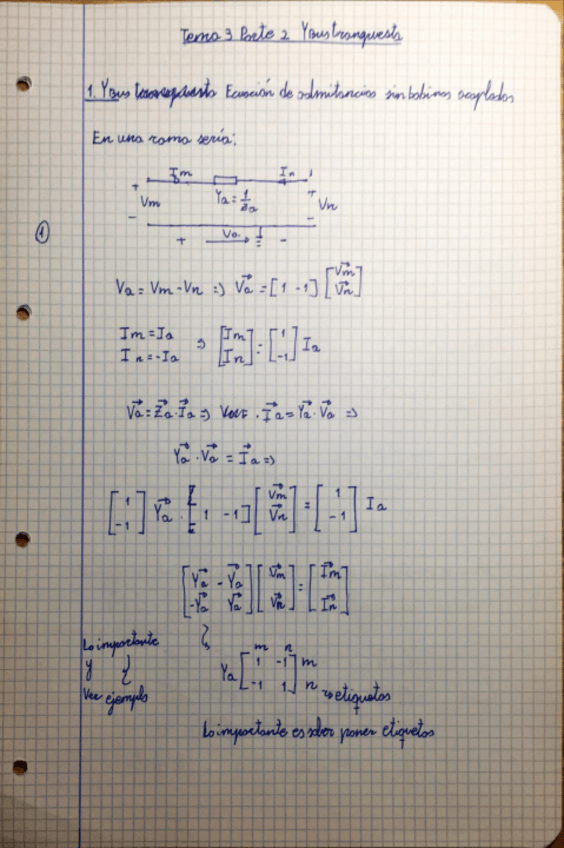 Tema 3 Parte 2 Ybus transpuesta
1. Ybus transpuesta Ecuación de admitancias sin bobinas acopladas
En una rama serie:
Im In
+ + 
Vm Ya = 1/Za Vn
- -
①
+ Va -
Va = Vm - Vn => Va = [1 -1] [Vm Vn]
Im = Ia
In = -Ia => [Im In] = [1 -1] Ia
Va = Za · Ia => · Ia = Ya · Va =>
Ya · Va = Ia =>
[1 -1] Ya · [1 -1] [Vm Vn] = [1 -1] Ia
[Ya -Ya
-Ya Ya] [Vm Vn] = [Im In]
Lo importante
y
Ver ejemplo
m n
Ya [1 -1] m
[-1 1] n → etiquetas
Lo importante es saber poner etiquetas